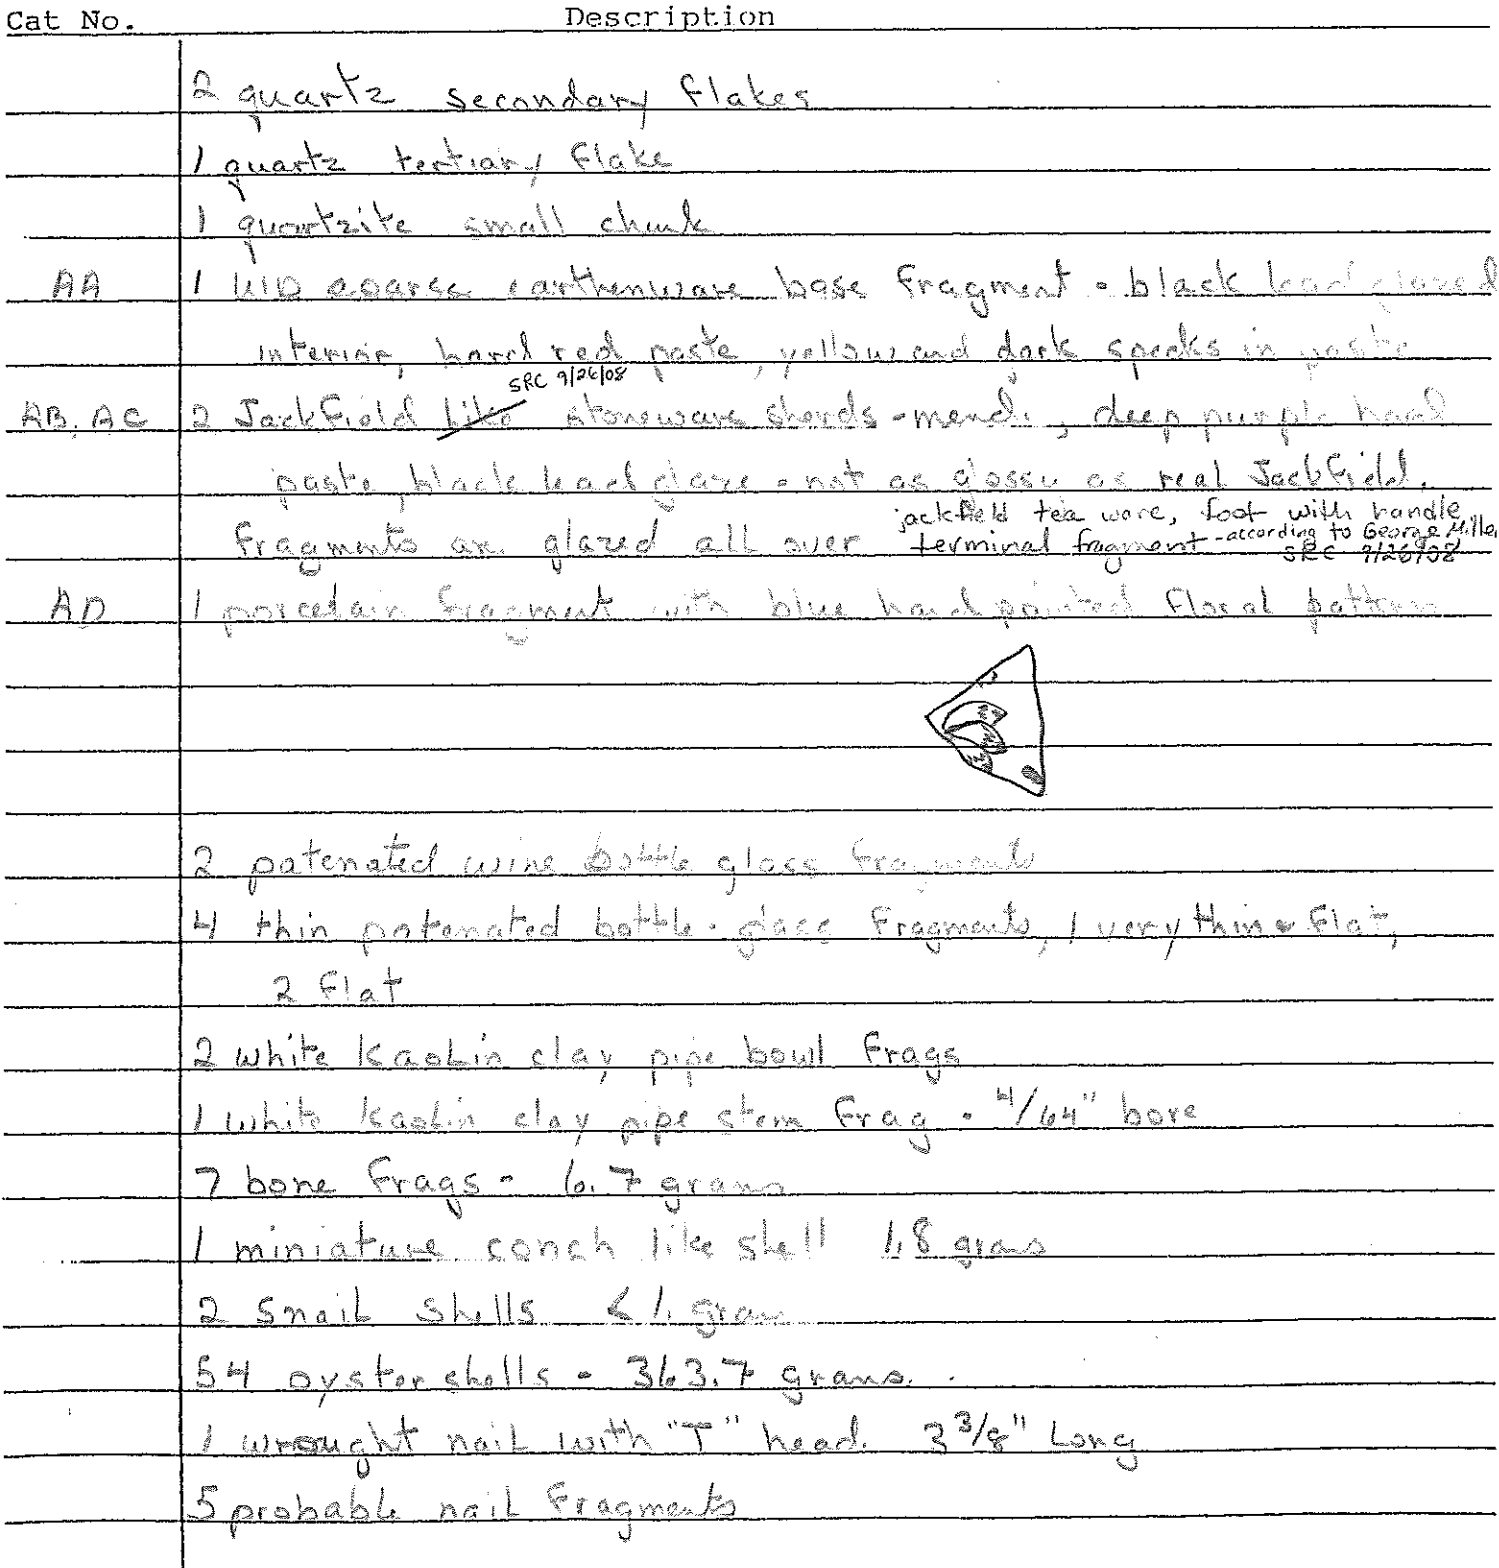 Cat No. Description
2 quartz secondary flakes
1 quartz tertiary flake
1 quartzite small chunk
AA 1 UID coarse earthenware base fragment - black lead glazed
interior, hard red paste, yellow and dark specks in paste
SRC 9/26/08
AB, AC 2 Jackfield like stoneware sherds - mend, deep purple hard
paste, black lead glaze - not as glossy as real Jackfield.
jackfield tea ware, foot with handle
Fragments are glazed all over terminal fragment - according to George Miller
SRC 9/26/08
AD 1 porcelain fragment with blue hand painted floral pattern
2 patenated wine bottle glass fragments
4 thin patenated bottle glass fragments, 1 very thin & flat,
2 flat
2 white kaolin clay pipe bowl frags
1 white kaolin clay pipe stem frag - 4/64" bore
7 bone frags - 6.7 grams
1 miniature conch like shell 1.8 grams
2 snail shells < 1. gram
54 oyster shells - 363.7 grams.
1 wrought nail with "T" head. 3 3/8" Long
5 probable nail fragments